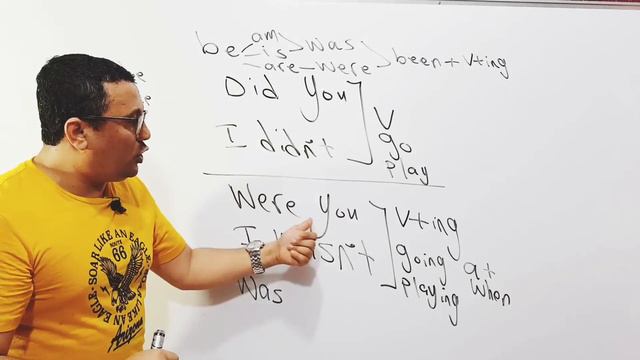 be am is are was were been + v+ing
Did You
I didn't
V
go
Play
Were You
I wasn't
Was
V+ing
going
Playing
at
when
SOAR LIKE AN EAGLE
ROUTE
66
Arizona